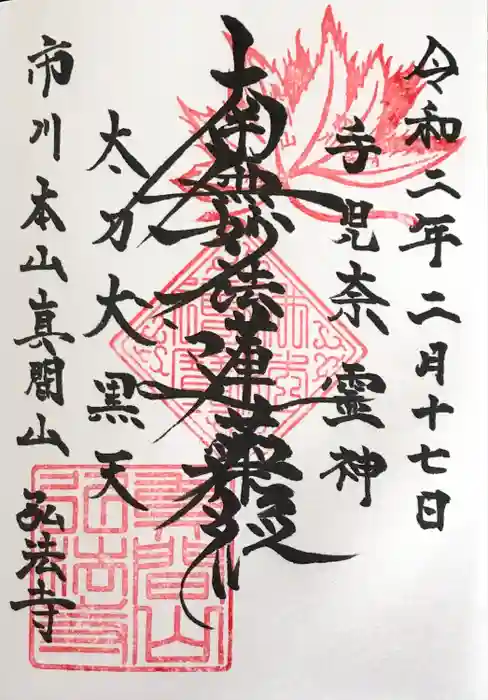 令和二年二月十七日
手児奈霊神
南無妙法蓮華経
太刀大黒天
市川本山真間山 弘法寺
真間山
弘法寺